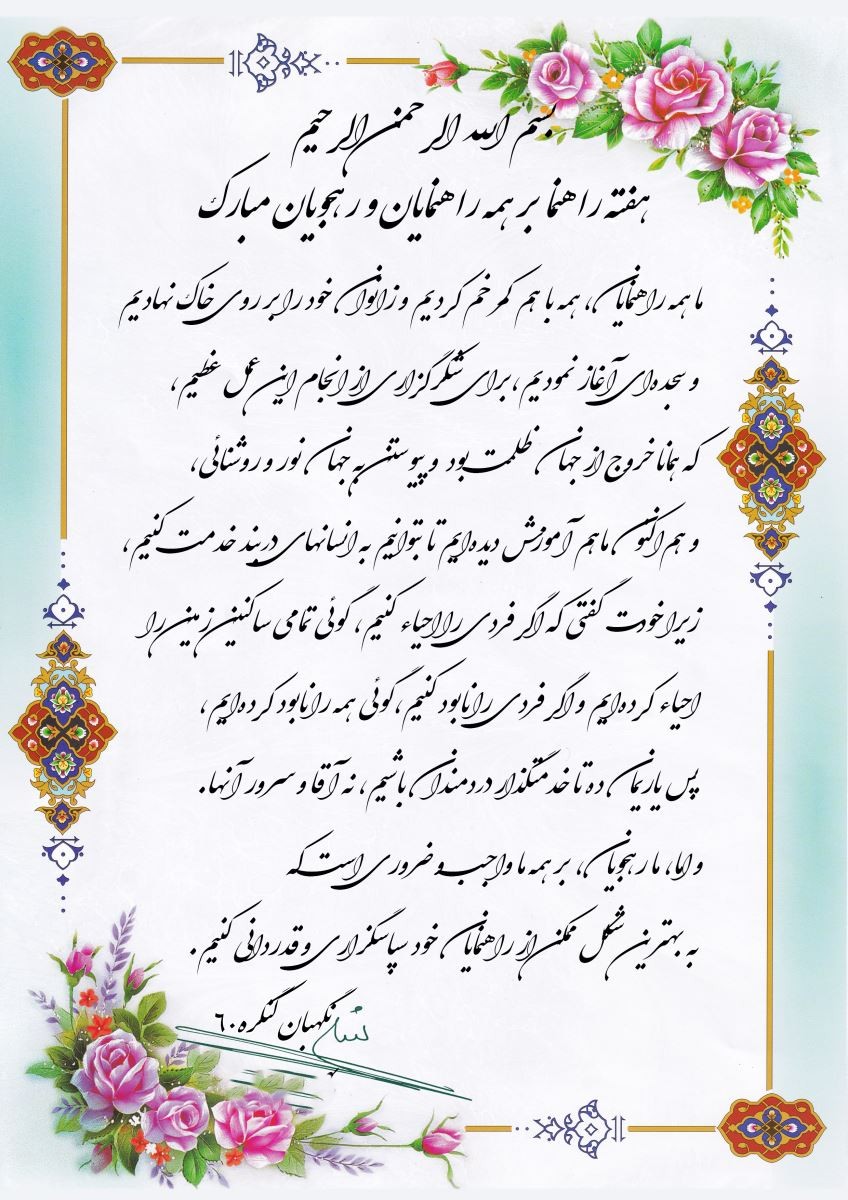 بسم الله الرحمن الرحیم
هفته راهنما بر همه راهنمایان و رهجویان مبارک
ما همه راهنمایان، همه با هم کمر خم کردیم و زانوان خود را بر روی خاک نهادیم
و سجده‌ای آغاز نمودیم، برای شکرگزاری از انجام این عمل عظیم،
که همانا خروج از جهان ظلمت بود و پیوستن به جهان نور و روشنائی،
و هم اکنون ما هم آموزش دیده‌ایم تا بتوانیم به انسانهای در بند خدمت کنیم،
زیرا خودت گفتی که اگر فردی را احیاء کنیم، گوئی تمامی ساکنین زمین را
احیاء کرده‌ایم و اگر فردی را نابود کنیم، گوئی همه را نابود کرده‌ایم،
پس یاریمان ده تا خدمتگذار دردمندان باشیم، نه آقا و سرور آنها.
و اما، ما رهجویان، بر همه ما واجب و ضروری است که
به بهترین شکل ممکن از راهنمایان خود سپاسگزاری و قدردانی کنیم.
نگهبان کنگره ۶۰